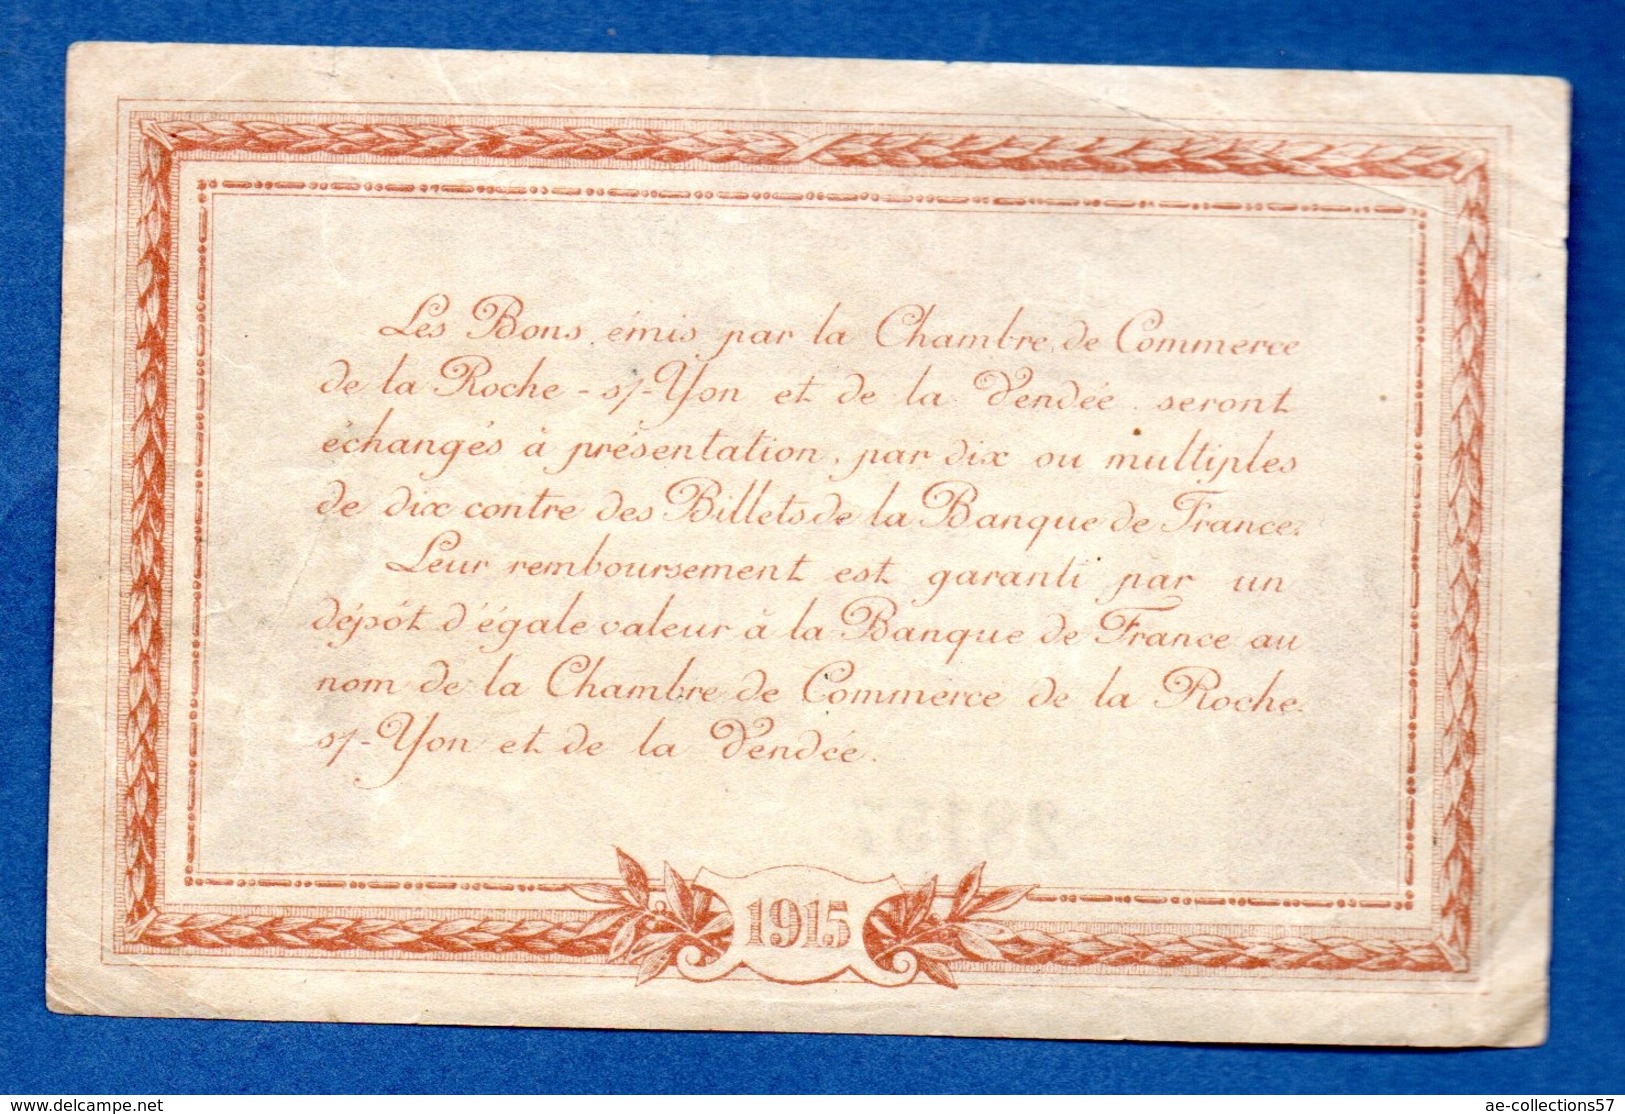 Les Bons, émis par la Chambre de Commerce
de la Roche-s/-Yon et de la Vendée seront
échangés à présentation, par dix ou multiples
de dix contre des Billets de la Banque de France.
Leur remboursement est garanti par un
dépôt d'égale valeur à la Banque de France au
nom de la Chambre de Commerce de la Roche-
s/-Yon et de la Vendée.
1915
www.delcampe.net
ae-collections57